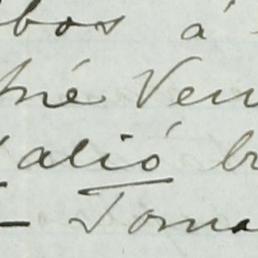 bos á
né Ven
alió b
— Toma